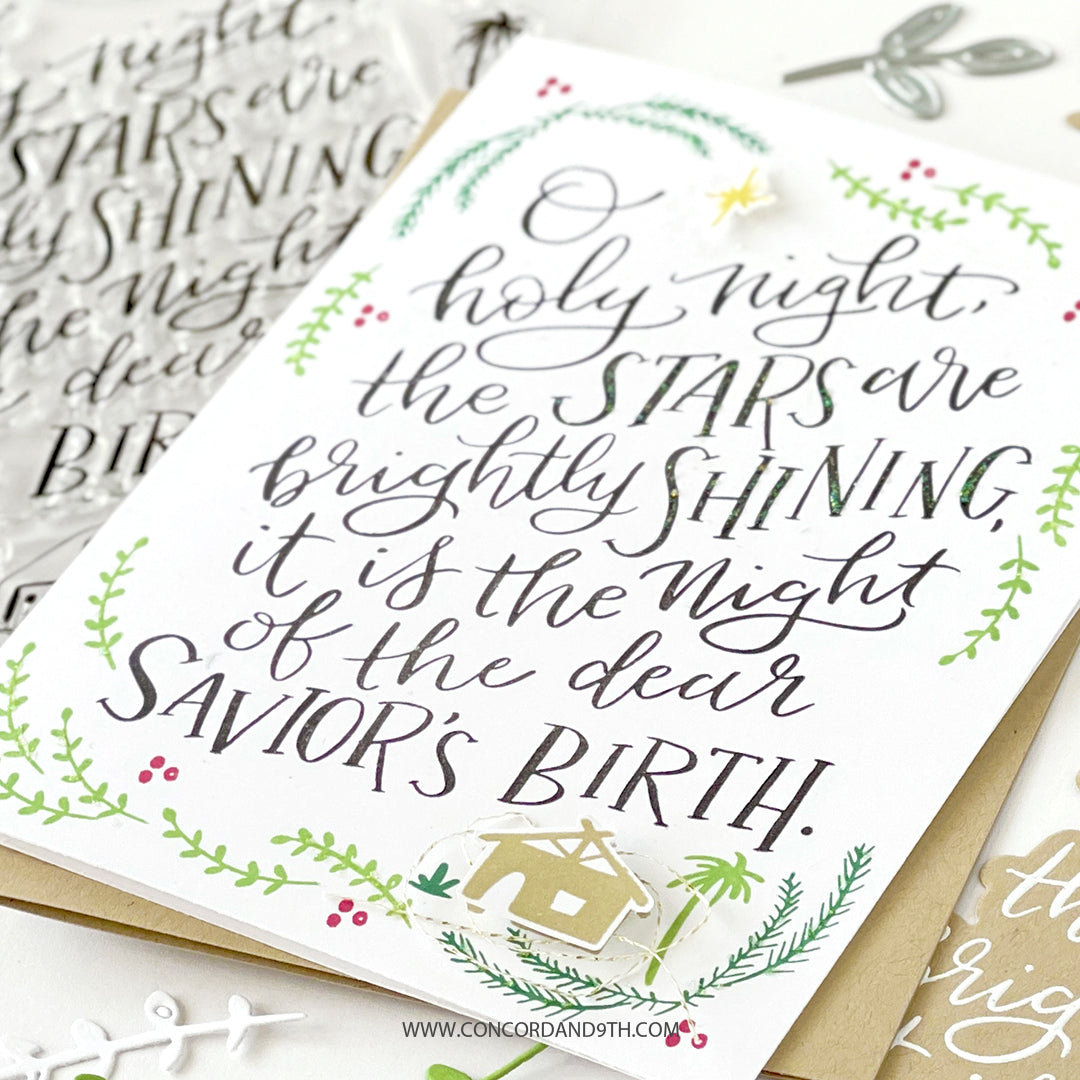 night
STARS are
SHINING
the Night
dear
O
holy night,
the STARS are
brightly SHINING,
it is the Night
of the dear
SAVIOR'S BIRTH.
WWW.CONCORDAND9TH.COM